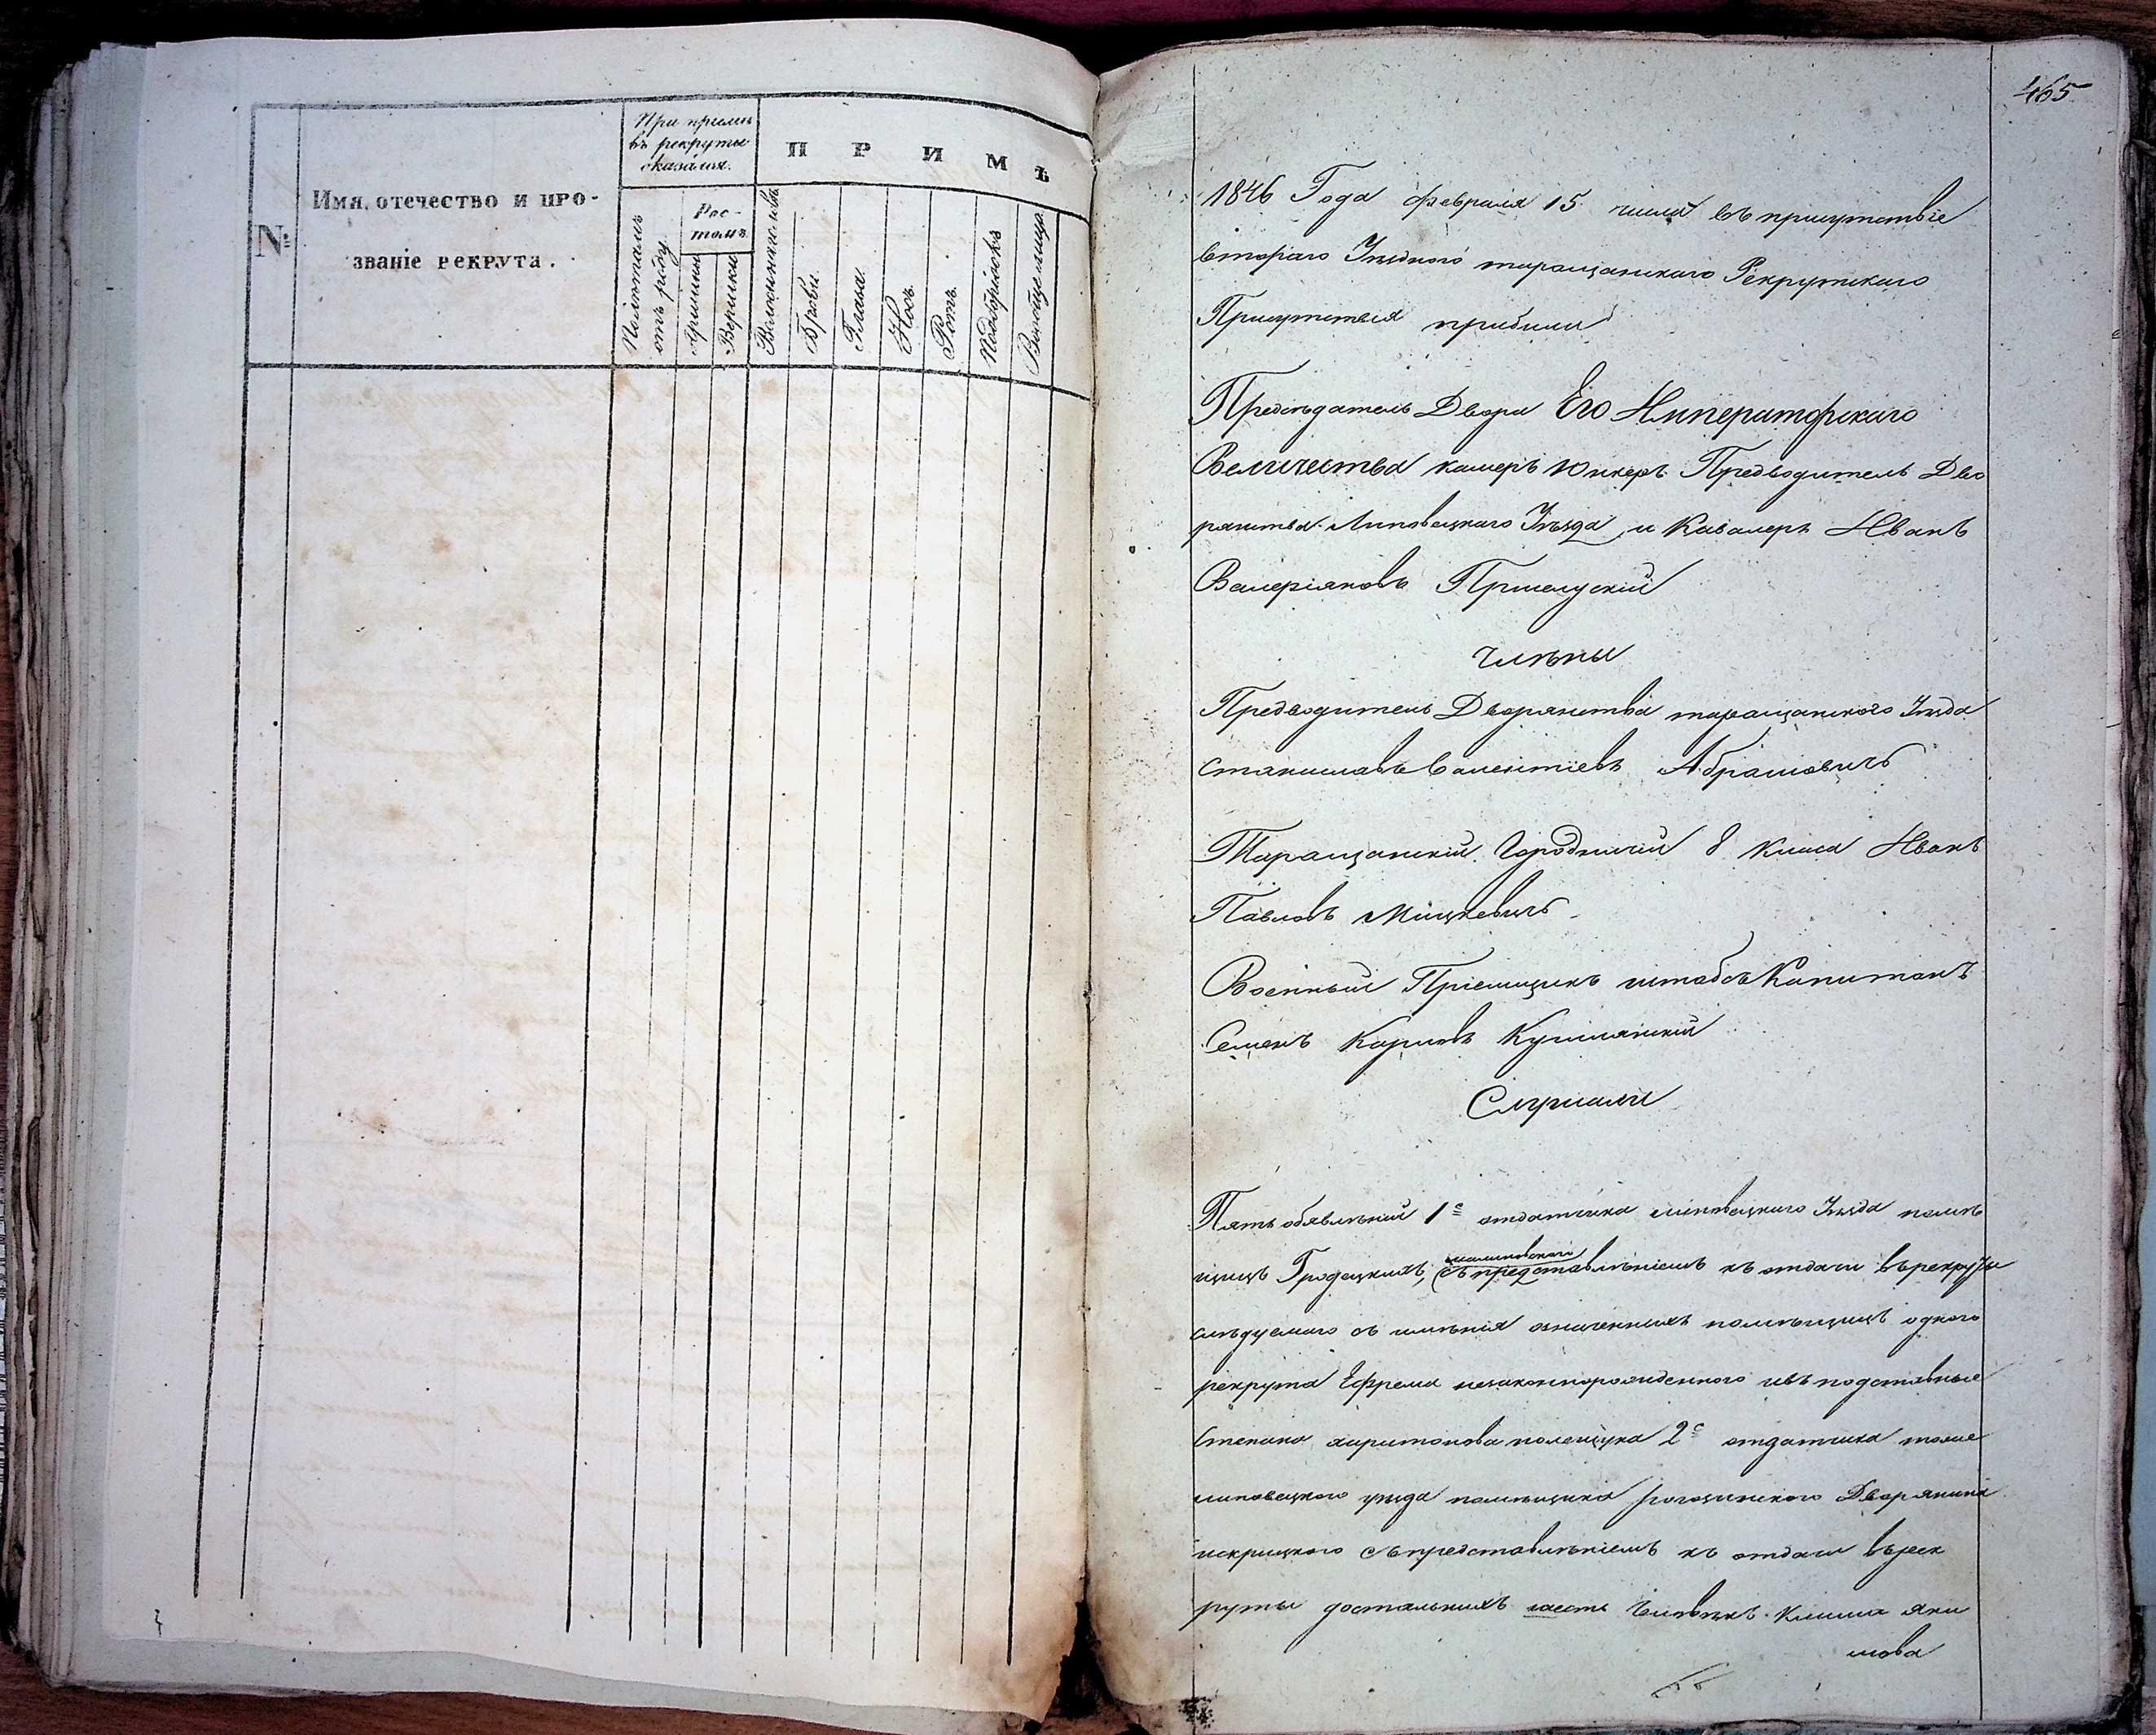 №
Имя, отечество и про-
званіе рекрута.
При приемѣ
въ рекруты
оказался.
Полѣтамъ
отъ роду.
Рос-
томъ.
Аршины
Вершки
П Р И М Ѣ
Брови.
Глаза.
Носъ.
Ротъ.
Подбородокъ
Вообще лице.
465
1846 Года февраля 15 числа въ присутствіе
втораго Уѣзднаго таращанскаго Рекрутскаго
Присутствія прибыли
Предсѣдатель Двора Его Императорскаго
Величества камеръ Юнкеръ Предводитель Дво
рянства Липовецкаго Уѣзда и Кавалеръ Иванъ
Валеріановъ
Члѣны
Предводитель Дворянства таращанского Уѣзда
Станиславъ Валентіевъ Абрамовичъ
Таращанскій Городничій 8 класа Иванъ
Павловъ Мицкевичъ
Военный Пріемщикъ штабсъ Капитанъ
Семенъ Карповъ
Слушали
Пять обявлѣній 1е отдатчика липовецкого Уѣзда помѣ
щицъ Гродецкихъ, съ представлѣніемъ къ отдачи въ рекруты
слѣдуемаго съ имѣнія означенныхъ помѣщицъ одного
рекрута Ефрема незаконнорожденного изъ подставные
Степана харитонова полещука 2е отдатчика тоже
липовецкого уѣзда помѣщика Дворянина
искрицкого съ представлѣніемъ къ отдачи въ рек
руты достальныхъ шесть Человѣкъ Клима Яки
мова